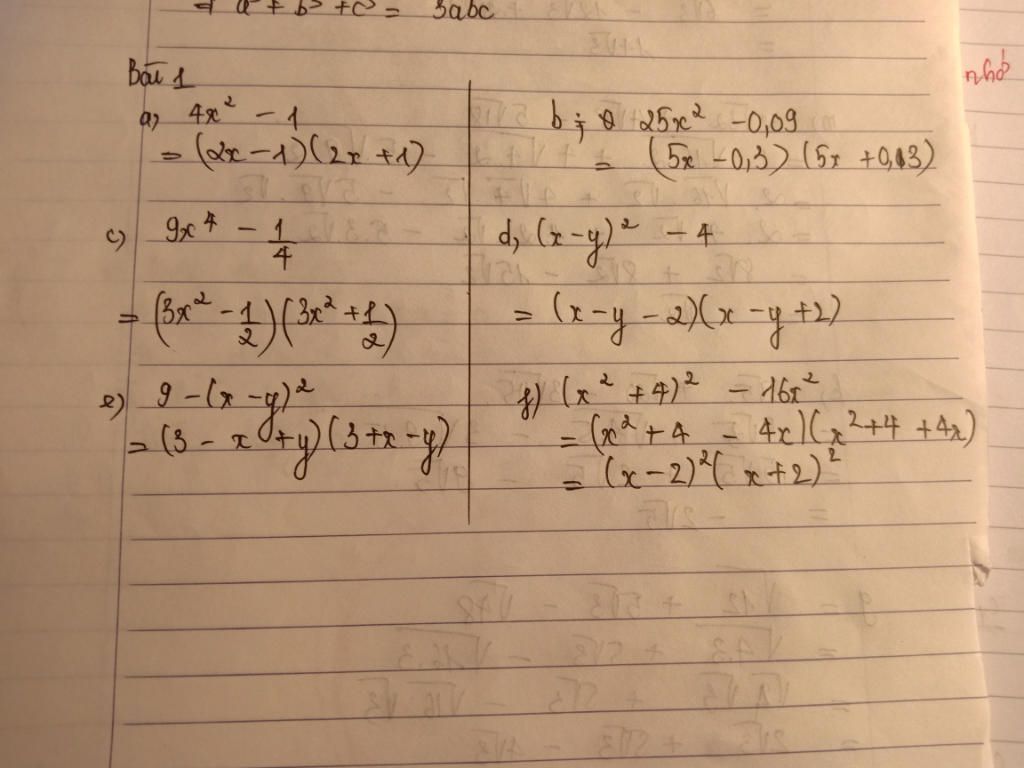 ⇒ a³ + b³ + c³ = 3abc
Bài 1
a, 4x² - 1
= (2x - 1)(2x + 1)
b, 25x² - 0,09
= (5x - 0,3)(5x + 0,3)
c) 9x⁴ - 1/4
= (3x² - 1/2)(3x² + 1/2)
d, (x-y)² - 4
= (x - y - 2)(x - y + 2)
e) 9 - (x - y)²
= (3 - x + y)(3 + x - y)
f) (x² + 4)² - 16x²
= (x² + 4 - 4x)(x² + 4 + 4x)
= (x - 2)²(x + 2)²
nhớ